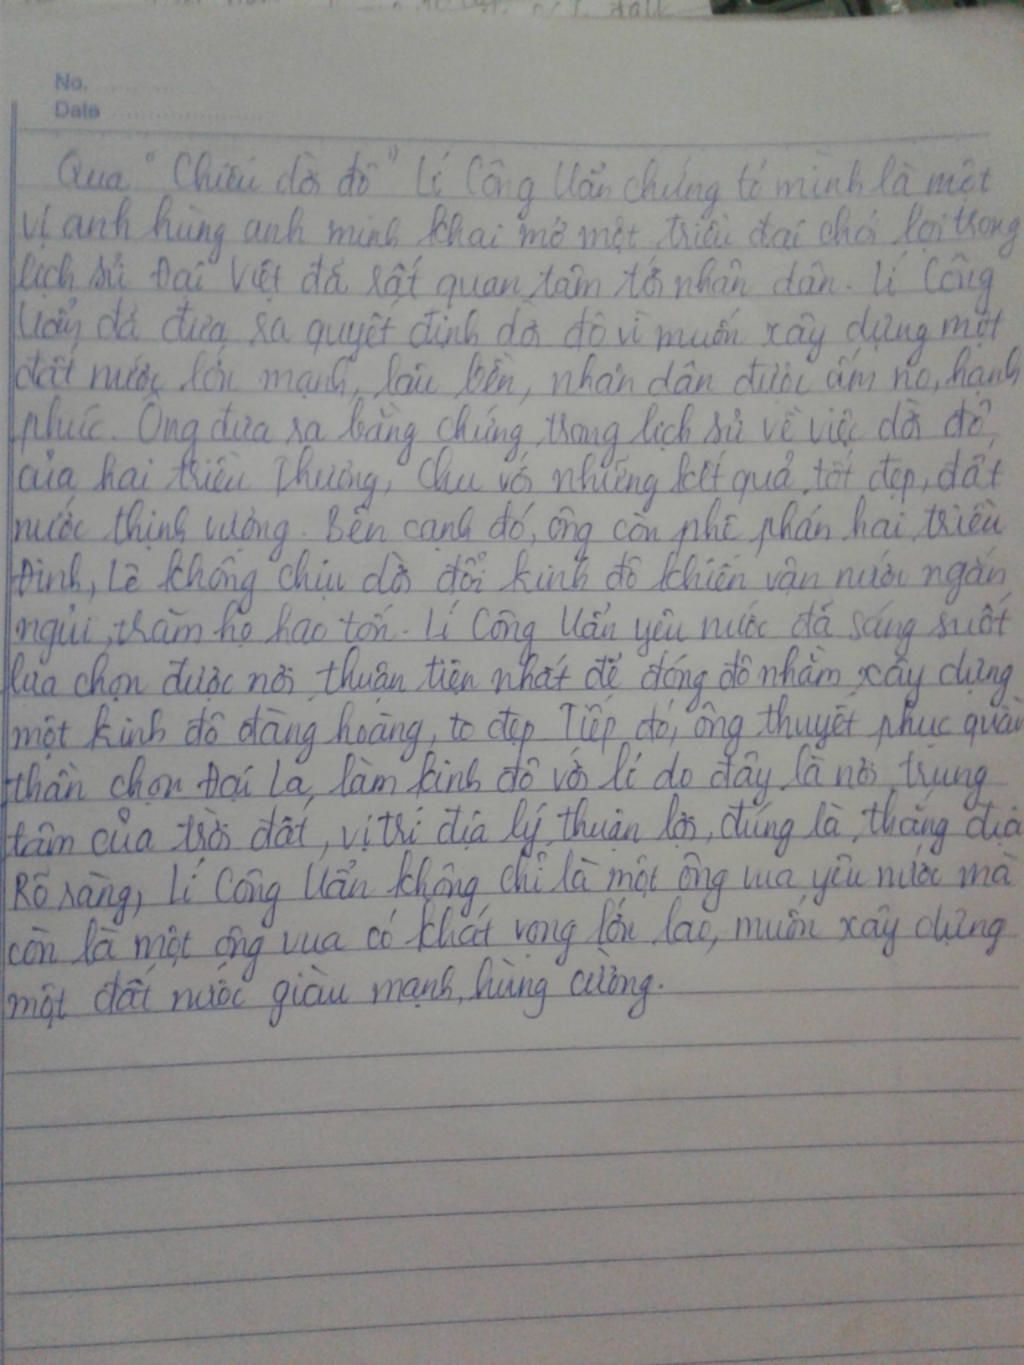 No.
Date
Qua "Chiếu dời đô" Lí Công Uẩn chứng tỏ mình là một
vị anh hùng anh minh khai mở một triều đại chói lọi trong
lịch sử Đại Việt đã rất quan tâm tới nhân dân. Lí Công
Uẩn đã đưa ra quyết định dời đô vì muốn xây dựng một
đất nước lớn mạnh, lâu bền, nhân dân được ấm no, hạnh
phúc. Ông đưa ra bằng chứng trong lịch sử về việc dời đô
của hai triều Thương, Chu với những kết quả tốt đẹp, đất
nước thịnh vượng. Bên cạnh đó, ông còn phê phán hai triều
Đinh, Lê không chịu dời đổi kinh đô khiến vận nước ngắn
ngủi, trăm họ hao tốn. Lí Công Uẩn yêu nước đã sáng suốt
lựa chọn được nơi thuận tiện nhất để đóng đô nhằm xây dựng
một kinh đô đàng hoàng, to đẹp Tiếp đó, ông thuyết phục quần
thần chọn Đại La, làm kinh đô với lí do đây là nơi trung
tâm của trời đất, vị trí địa lý thuận lợi, đúng là thắng địa
Rõ ràng, Lí Công Uẩn không chỉ là một ông vua yêu nước mà
còn là một ông vua có khát vọng lớn lao, muốn xây dựng
một đất nước giàu mạnh, hùng cường.